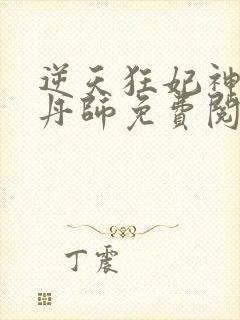 逆天狂妃神
丹師免費閱
丁震